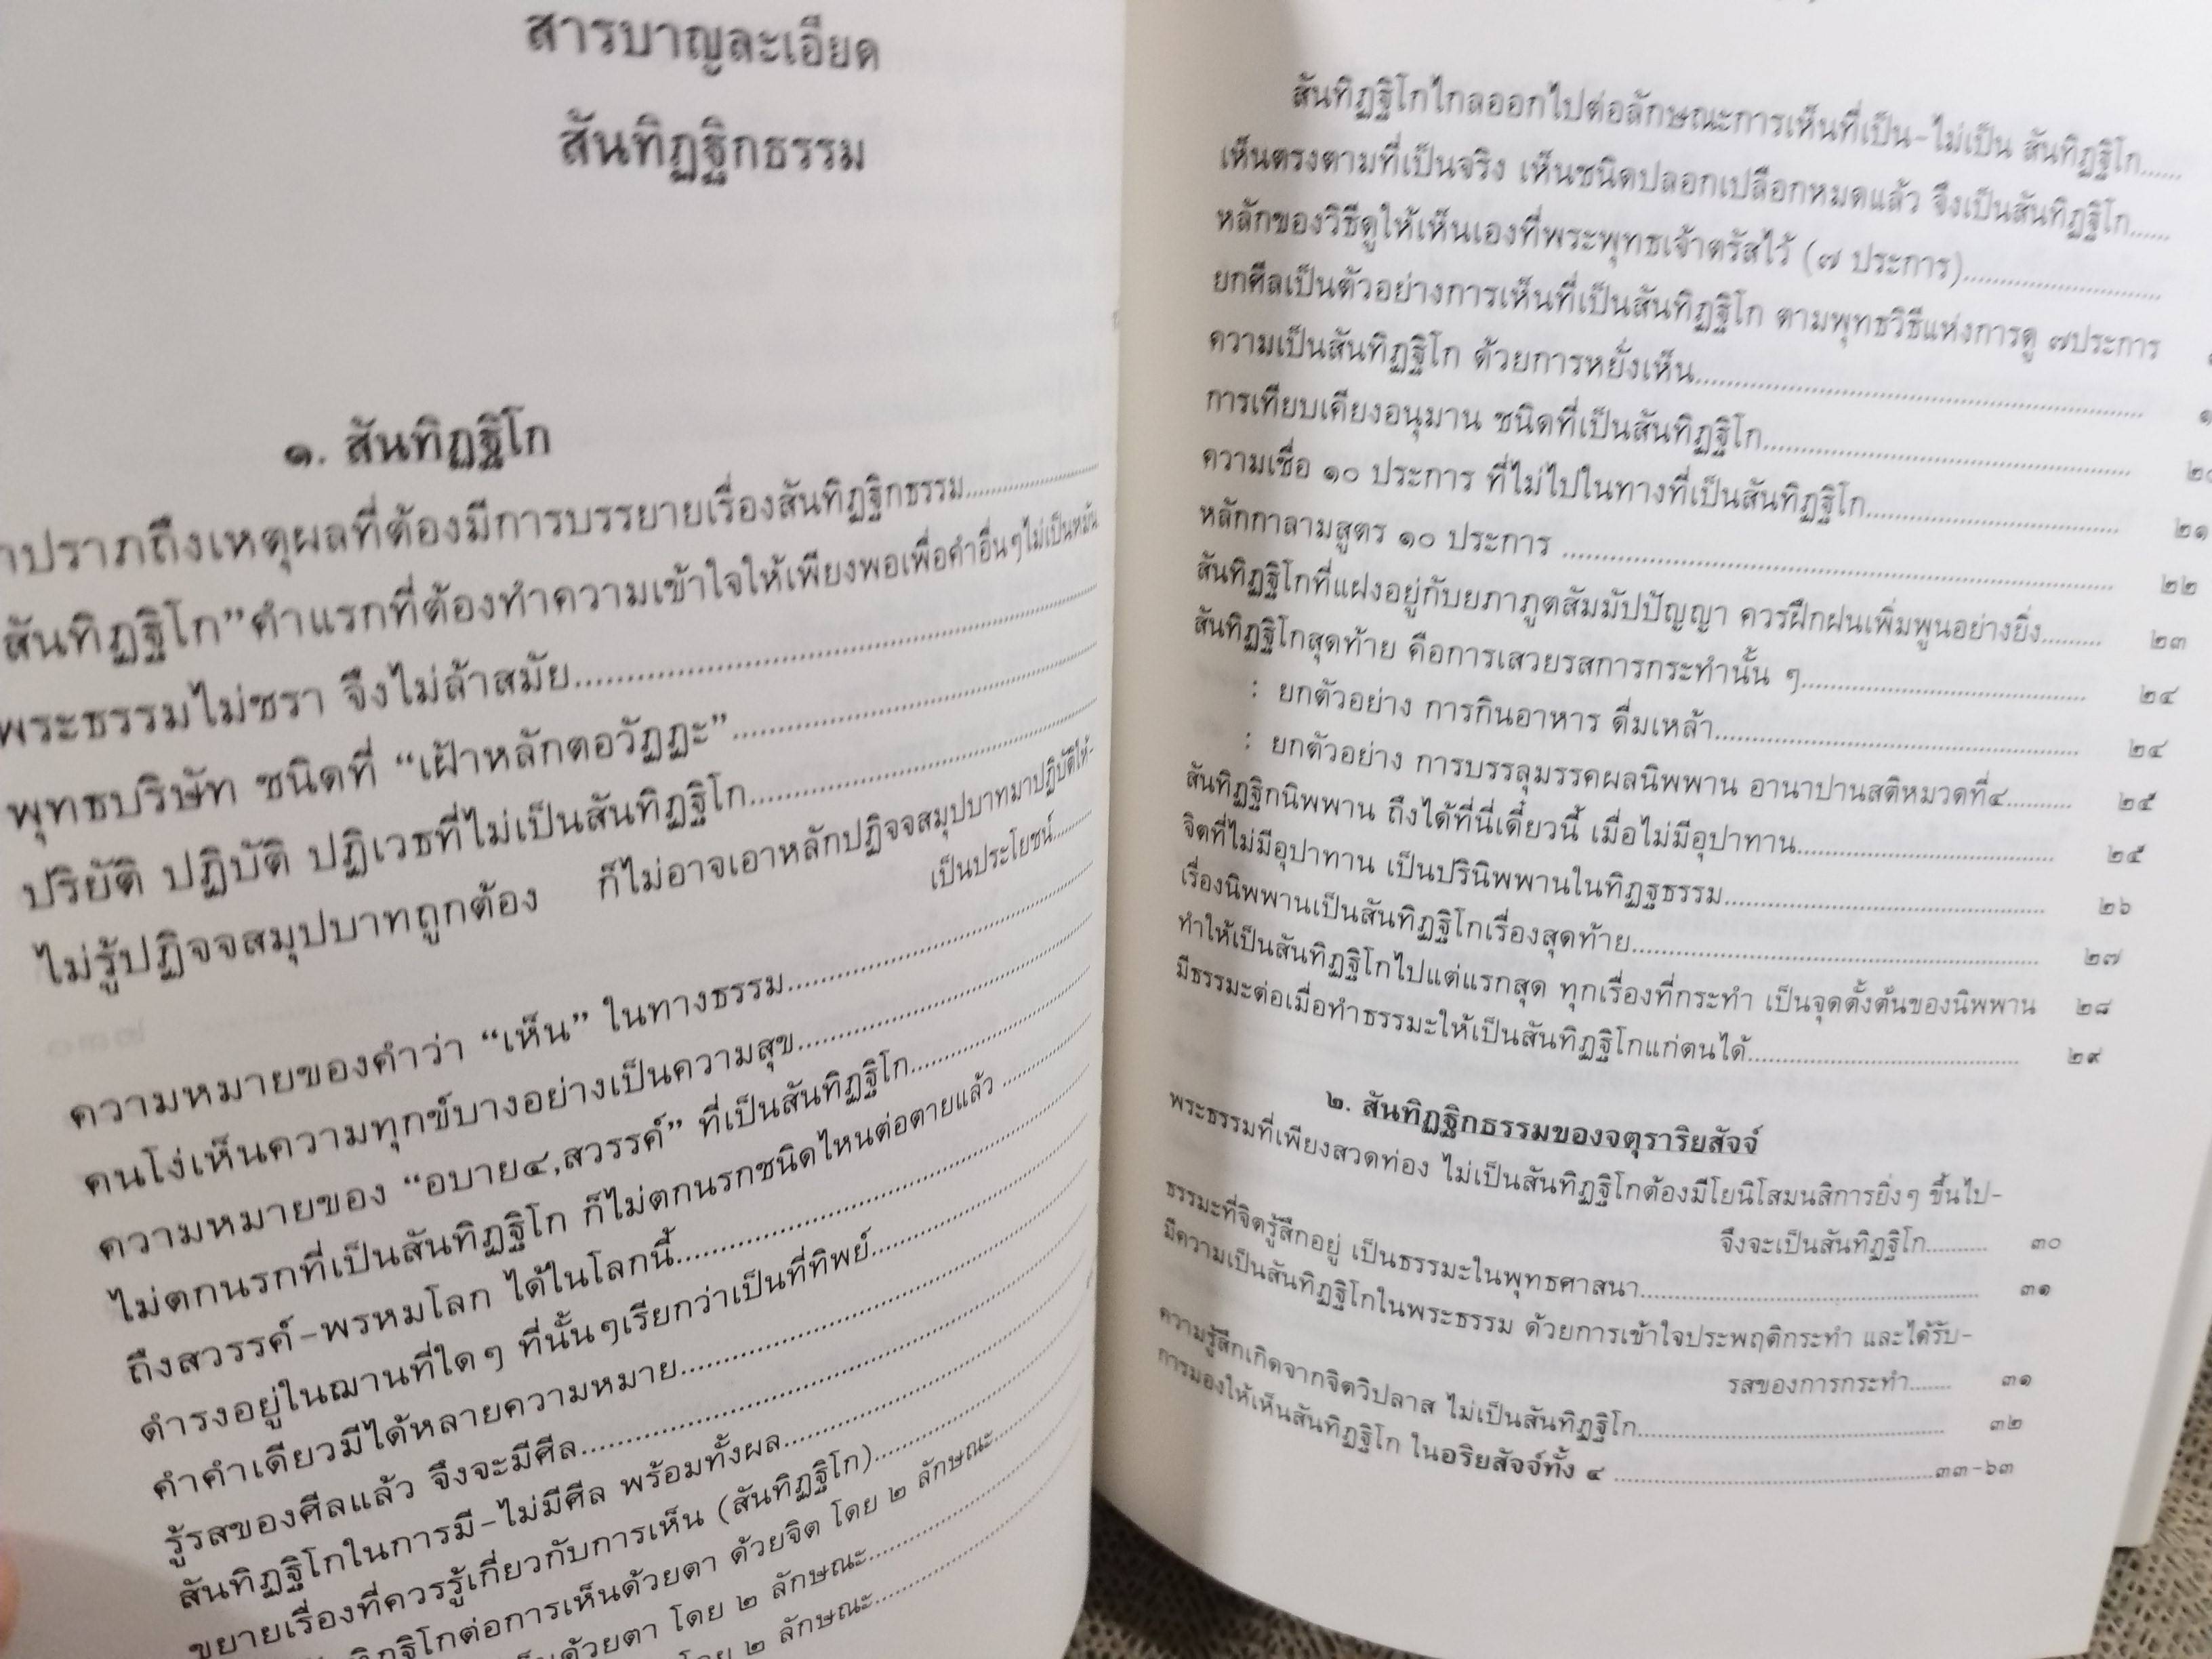 สารบาญละเอียด
สันทิฏฐิกธรรม
๑. สันทิฏฐิโก
าปรารภถึงเหตุผลที่ต้องมีการบรรยายเรื่องสันทิฏฐิกธรรม
สันทิฏฐิโก”คำแรกที่ต้องทำความเข้าใจให้เพียงพอเพื่อคำอื่นๆไม่เป็นหมัน
พระธรรมไม่ชรา จึงไม่ล้าสมัย
พุทธบริษัท ชนิดที่ “เฝ้าหลักตอวัฏฏะ”
ปริยัติ ปฏิบัติ ปฏิเวธที่ไม่เป็นสันทิฏฐิโก
ไม่รู้ปฏิจจสมุปบาทถูกต้อง ก็ไม่อาจเอาหลักปฏิจจสมุปบาทมาปฏิบัติให้-
เป็นประโยชน์
ความหมายของคำว่า “เห็น” ในทางธรรม
คนโง่เห็นความทุกข์บางอย่างเป็นความสุข
ความหมายของ “อบาย๔,สวรรค์” ที่เป็นสันทิฏฐิโก
ไม่ตกนรกที่เป็นสันทิฏฐิโก ก็ไม่ตกนรกชนิดไหนต่อตายแล้ว
ถึงสวรรค์-พรหมโลก ได้ในโลกนี้
ดำรงอยู่ในฌานที่ใดๆ ที่นั้นๆเรียกว่าเป็นที่ทิพย์
คำคำเดียวมีได้หลายความหมาย
รู้รสของศีลแล้ว จึงจะมีศีล
สันทิฏฐิโกในการมี-ไม่มีศีล พร้อมทั้งผล
ขยายเรื่องที่ควรรู้เกี่ยวกับการเห็น (สันทิฏฐิโก)
ทิฏฐิโกต่อการเห็นด้วยตา ด้วยจิต โดย ๒ ลักษณะ
็นด้วยตา โดย ๒ ลักษณะ
โดย ๒ ลักษณะ
สันทิฏฐิโกไกลออกไปต่อลักษณะการเห็นที่เป็น-ไม่เป็น สันทิฏฐิโก
เห็นตรงตามที่เป็นจริง เห็นชนิดปลอกเปลือกหมดแล้ว จึงเป็นสันทิฏฐิโก
หลักของวิธีดูให้เห็นเองที่พระพุทธเจ้าตรัสไว้ (๗ ประการ)
ยกศีลเป็นตัวอย่างการเห็นที่เป็นสันทิฏฐิโก ตามพุทธวิธีแห่งการดู ๗ประการ
ความเป็นสันทิฏฐิโก ด้วยการหยั่งเห็น
การเทียบเคียงอนุมาน ชนิดที่เป็นสันทิฏฐิโก
ความเชื่อ ๑๐ ประการ ที่ไม่ไปในทางที่เป็นสันทิฏฐิโก ๒๑
หลักกาลามสูตร ๑๐ ประการ ๒๒
สันทิฏฐิโกที่แฝงอยู่กับยภาภูตสัมมัปปัญญา ควรฝึกฝนเพิ่มพูนอย่างยิ่ง ๒๓
สันทิฏฐิโกสุดท้าย คือการเสวยรสการกระทำนั้น ๆ ๒๔
: ยกตัวอย่าง การกินอาหาร ดื่มเหล้า ๒๔
: ยกตัวอย่าง การบรรลุมรรคผลนิพพาน อานาปานสติหมวดที่๔ ๒๕
สันทิฏฐิกนิพพาน ถึงได้ที่นี่เดี๋ยวนี้ เมื่อไม่มีอุปาทาน ๒๕
จิตที่ไม่มีอุปาทาน เป็นปรินิพพานในทิฏฐธรรม ๒๖
เรื่องนิพพานเป็นสันทิฏฐิโกเรื่องสุดท้าย ๒๗
ทำให้เป็นสันทิฏฐิโกไปแต่แรกสุด ทุกเรื่องที่กระทำ เป็นจุดตั้งต้นของนิพพาน ๒๘
มีธรรมะต่อเมื่อทำธรรมะให้เป็นสันทิฏฐิโกแก่ตนได้ ๒๙
๒. สันทิฏฐิกธรรมของจตุราริยสัจจ์
พระธรรมที่เพียงสวดท่อง ไม่เป็นสันทิฏฐิโกต้องมีโยนิโสมนสิการยิ่งๆ ขึ้นไป-
จึงจะเป็นสันทิฏฐิโก ๓๐
ธรรมะที่จิตรู้สึกอยู่ เป็นธรรมะในพุทธศาสนา ๓๑
มีความเป็นสันทิฏฐิโกในพระธรรม ด้วยการเข้าใจประพฤติกระทำ และได้รับ-
รสของการกระทำ ๓๑
ความรู้สึกเกิดจากจิตวิปลาส ไม่เป็นสันทิฏฐิโก ๓๒
การมองให้เห็นสันทิฏฐิโก ในอริยสัจจ์ทั้ง ๔ ๓๓-๖๓